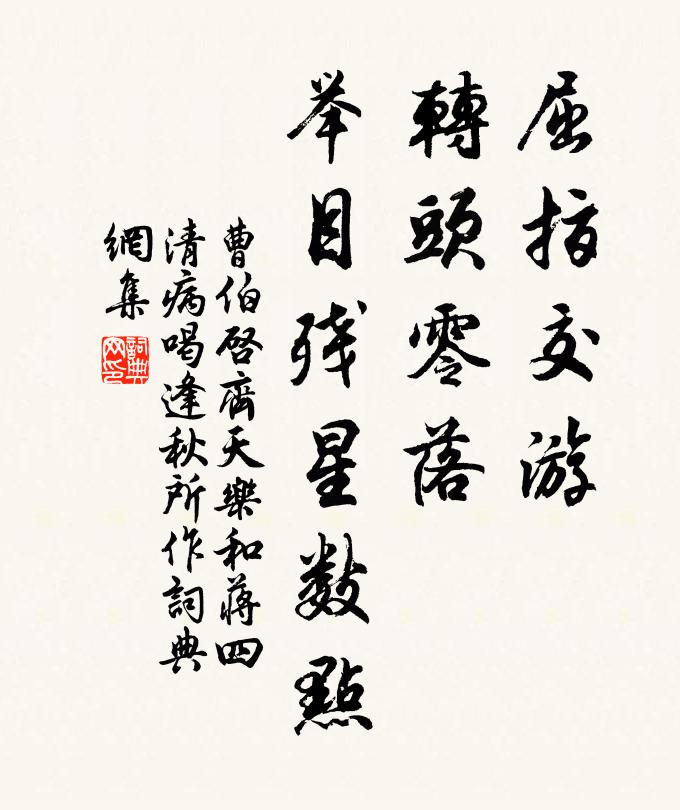 屈指交游
轉頭零落
举目残星数點
曹伯启齊天樂和蒋四
清病喝逢秋所作詞典
網集
詞典
网印